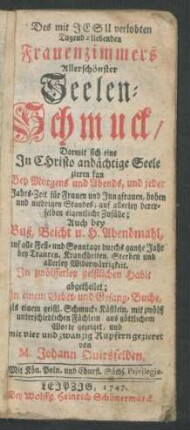 Des mit JESU verlobten
Tugend-liebenden
Frauenzimmers
Allerschönster
Seelen-
Schmuck/
Darmit sich eine
In Christo andächtige Seele
zieren kan
Bey Morgens und Abends, und jeder
Jahrs-Zeit für Frauen und Jungfrauen, hohen
und niedrigen Standes, auf allerley dererselben
eigentliche Zufälle;
Auch bey
Buß, Beicht u. H. Abendmahl,
auf alle Fest- und Sonntage durchs gantze Jahr
bey Trauren, Kranckheiten, Sterben und
allerley Widerwärtigkeit,
In zwölfferley geistlichen Habit
abgetheilet;
In einem Gebet- und Gesang-Buche,
als einem geistl. Schmuck-Kästlein, mit zwölff
unterschiedlichen Fächlein aus göttlichem
Worte gezeiget, und
mit vier und zwanzig Kupfern gezieret
von
M. Johann Quirsfelden.
Mit Kön. Poln. und Churfl. Sächs. Privilegio.
LEIPZIG, 1747.
Bey Wolffg. Heinrich Schönermarck